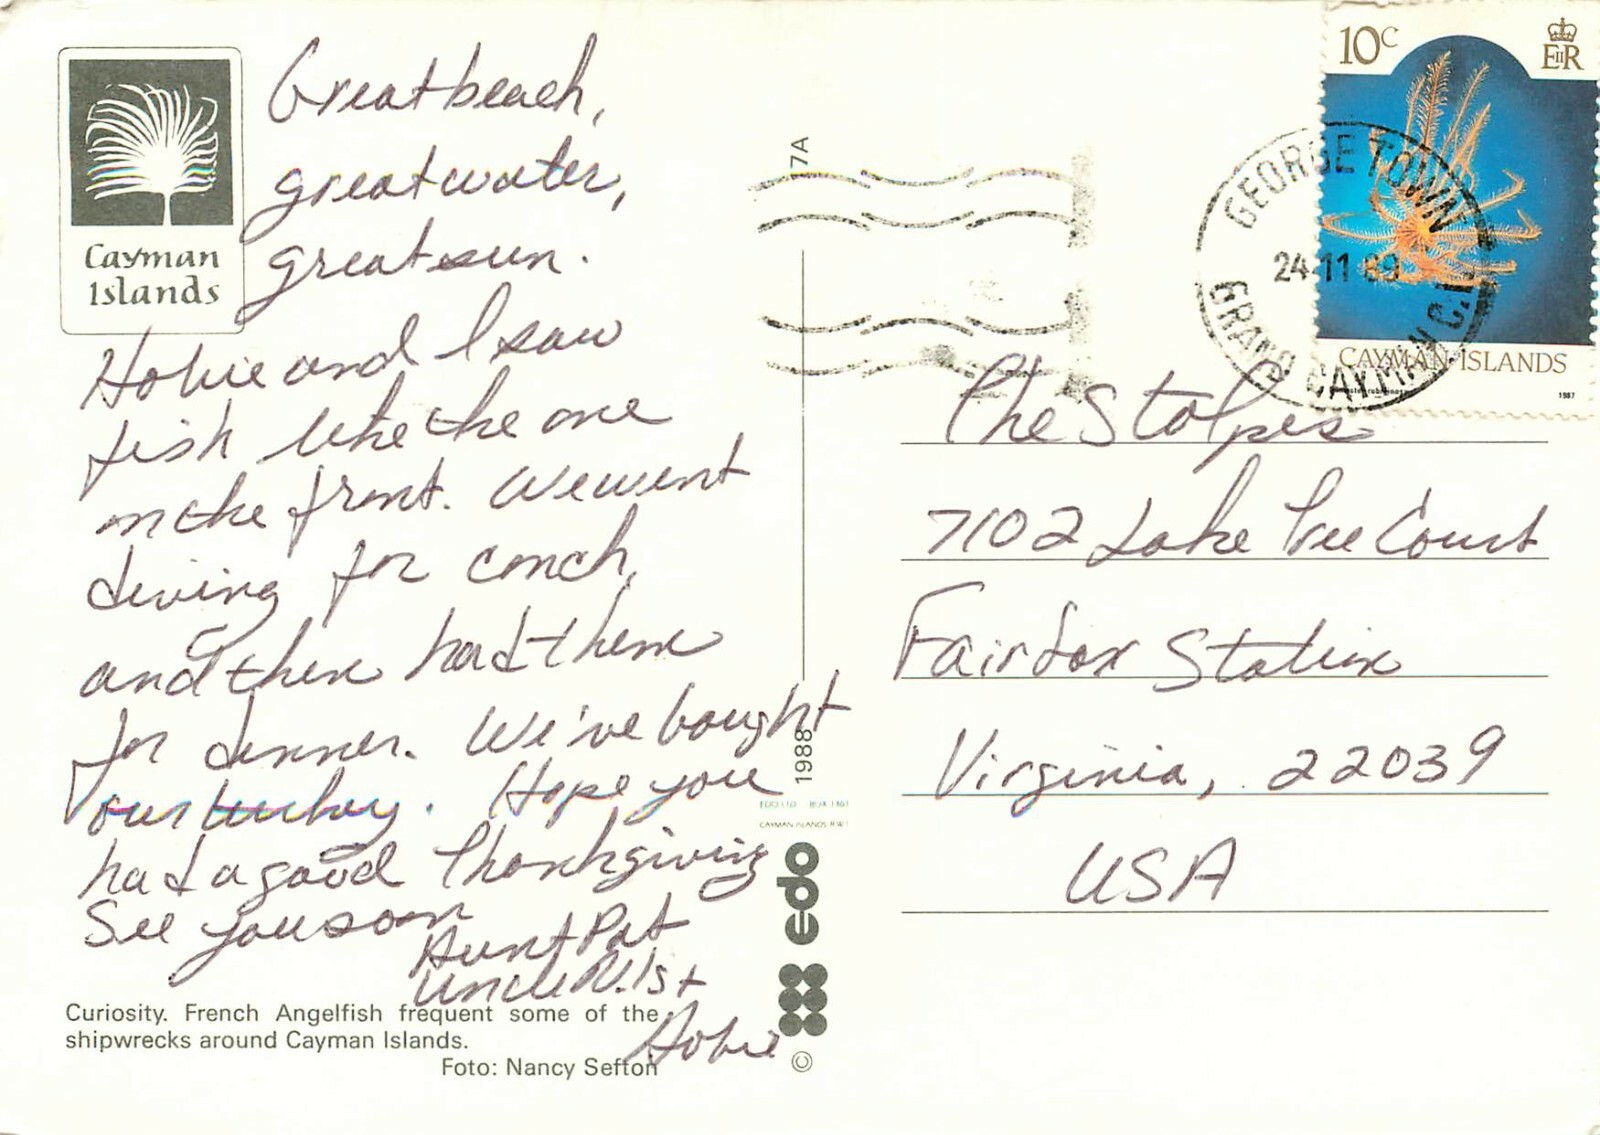 Cayman
Islands
Great beach,
great water,
great sun.
Hobie and I saw
fish like the one
on the front. We went
diving for conch,
and then had them
for dinner. We've bought
our turkey. Hope you
had a good Thanksgiving
See you soon
Aunt Pat
Uncle Nils +
Hobie
Curiosity. French Angelfish frequent some of the
shipwrecks around Cayman Islands.
Foto: Nancy Sefton
17A
1988
CAYMAN ISLANDS B.W.I.
edo
©
10c
EIIR
CAYMAN ISLANDS
1987
GEORGE TOWN
24 11 89
GRAND CAYMAN C.I.
The Stolpes
7102 Lake Tree Court
Fairfax Station
Virginia, 22039
USA